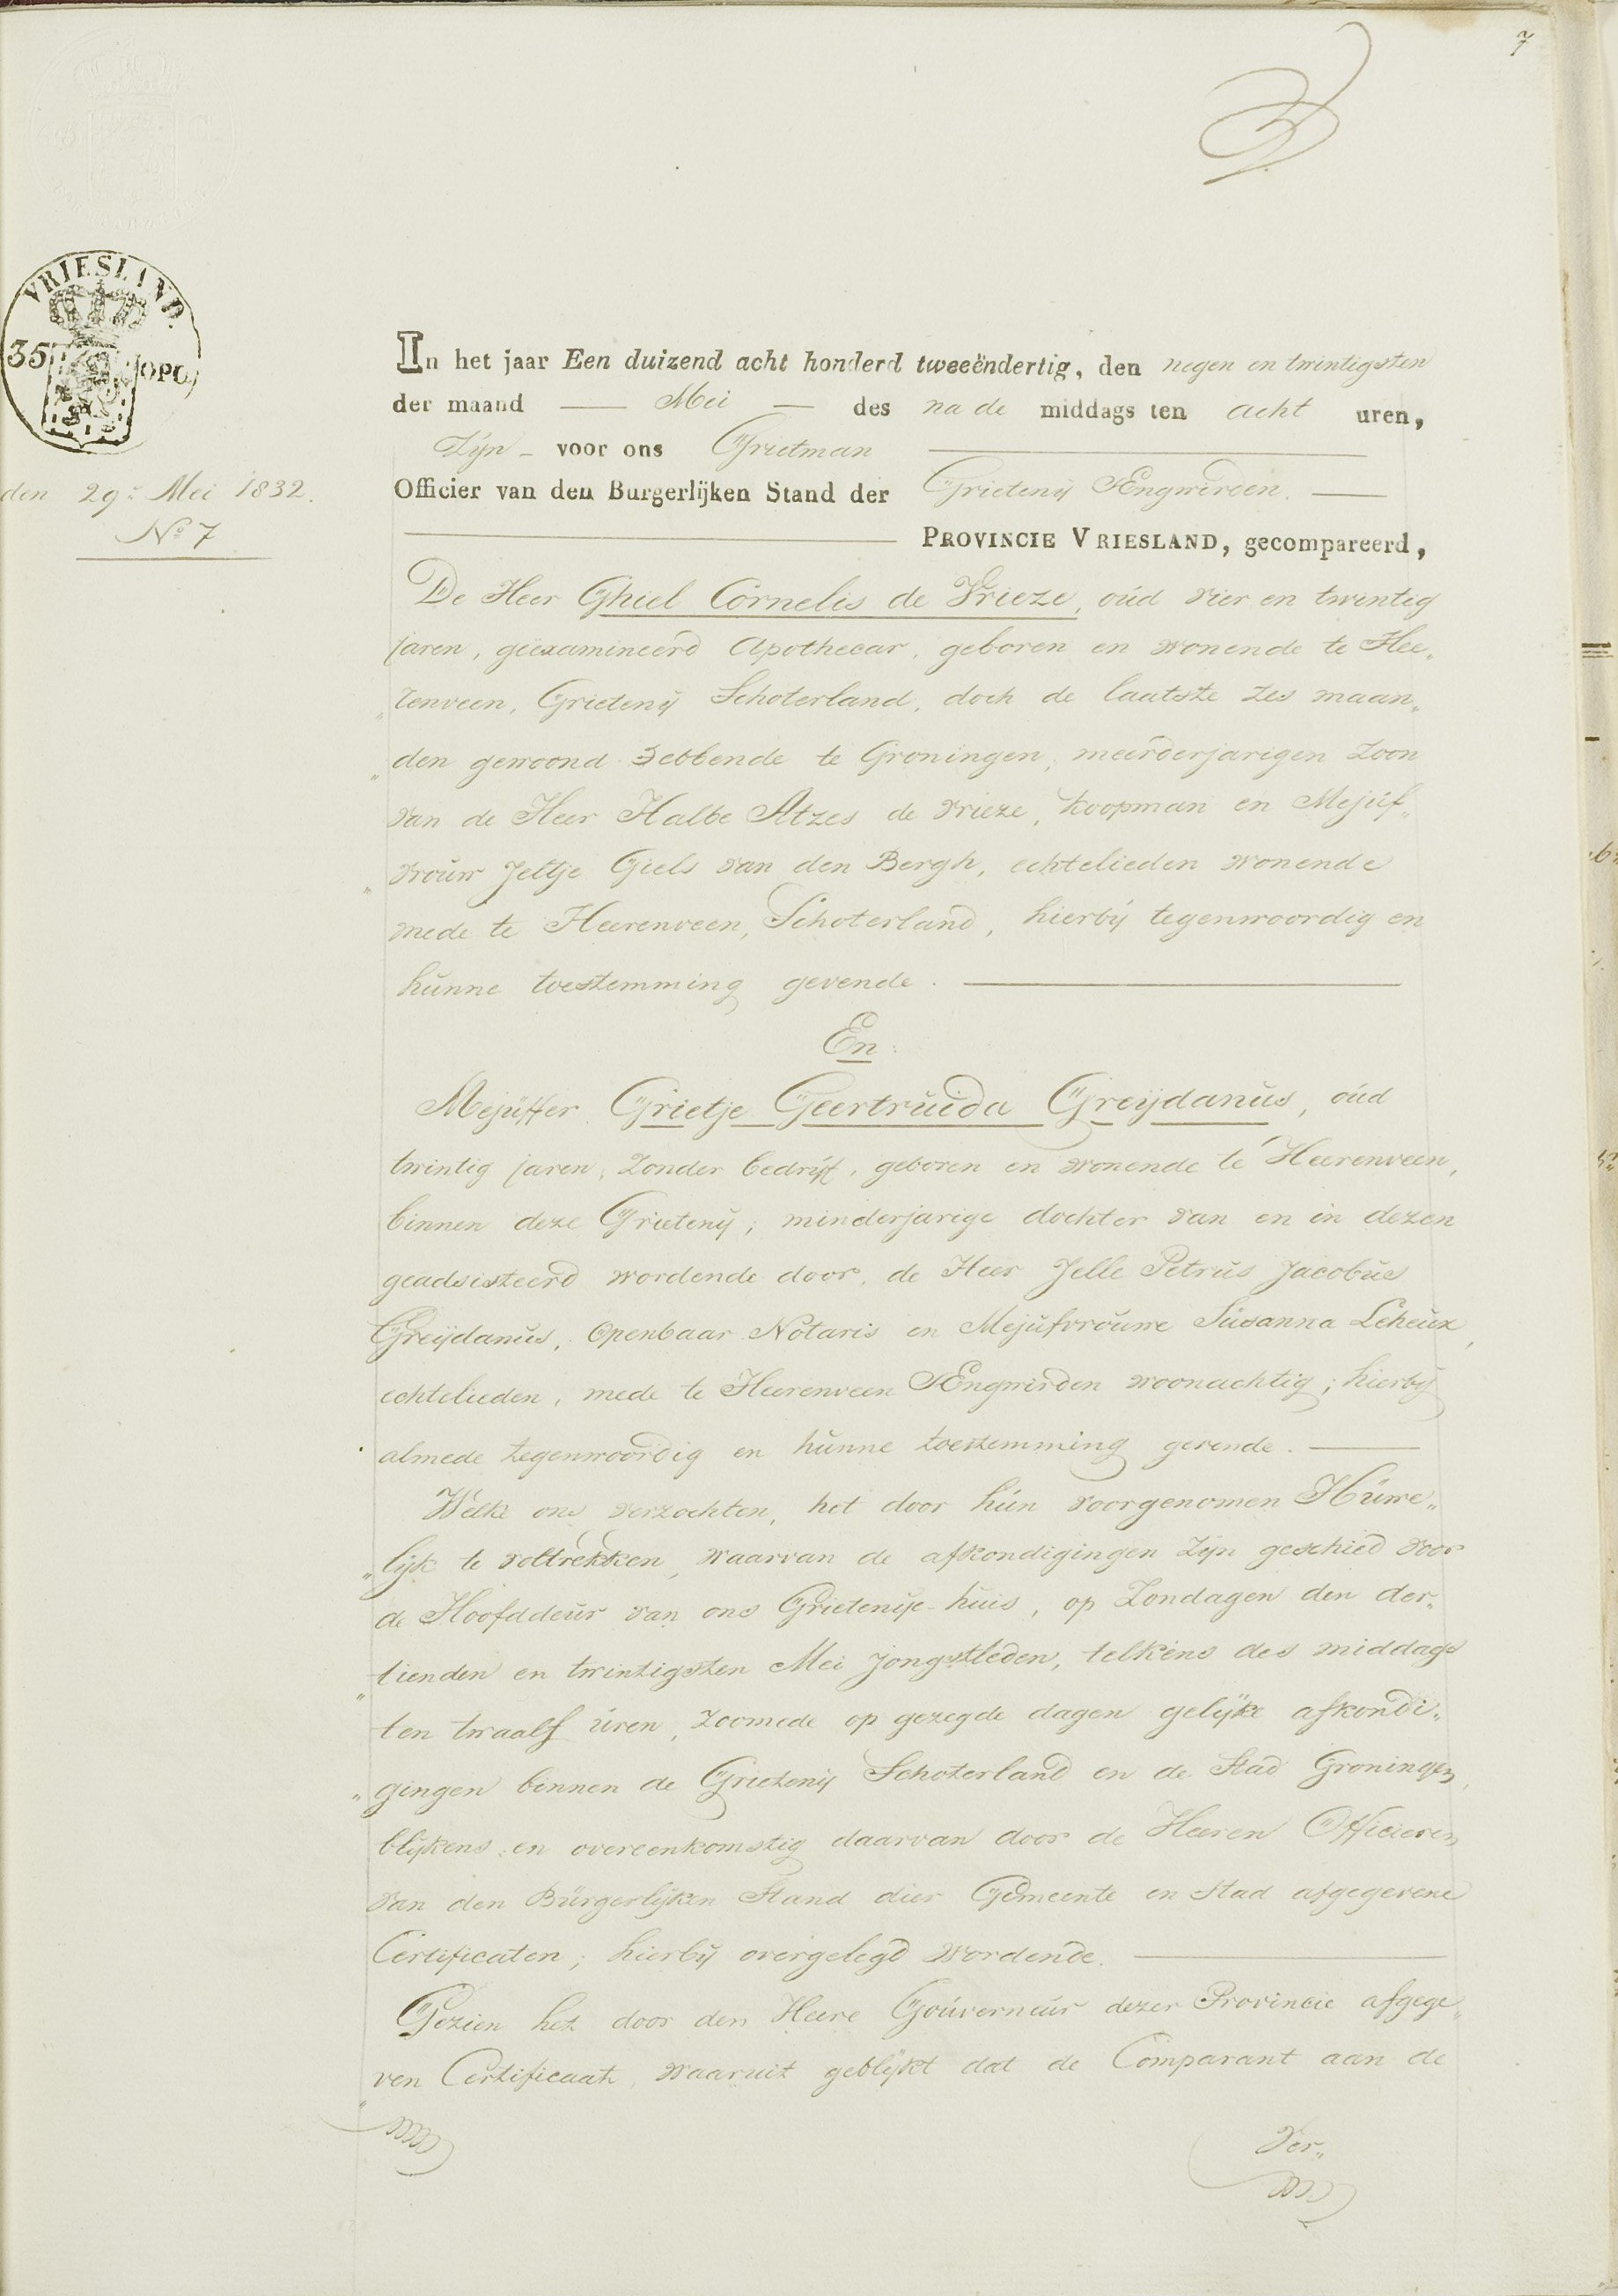 7
VRIESLAND.
35 OPC.
den 29e Mei 1832.
No 7
In het jaar Een duizend acht honderd tweeëndertig, den negen en twintigsten
der maand — Mei — des na de middags ten acht uren,
Zijn - voor ons Grietman
Officier van den Burgerlijken Stand der Grietenij Ængwirden.
PROVINCIE VRIESLAND, gecompareerd,
De Heer Ghiel Cornelis de Vrieze, oud vier en twintig
jaren, geëxamineerd Apothecar, geboren en wonende te Hee„
„renveen, Grietenij Schoterland, doch de laatste zes maan„
„den gewoond hebbende te Groningen, meerderjarigen Zoon
van de Heer Halbe Atzes de Vrieze, Koopman en Mejuf„
„vrouw Jeltje Giels van den Bergh, echtelieden wonende
mede te Heerenveen, Schoterland, hierbij tegenwoordig en
hunne toestemming gevende.
En
Mejuffer Grietje Geertruida Greijdanus, oud
twintig jaren, Zonder bedrijf, geboren en wonende te Heerenveen,
binnen deze Grietenij, minderjarige dochter van en in dezen
geadsisteerd wordende door, de Heer Jelle Petrus Jacobus
Greijdanus, Openbaar Notaris en Mejufvrouwe Susanna Leheux,
echtelieden, mede te Heerenveen Ængwirden woonachtig; hierbij
almede tegenwoordig en hunne toestemming gevende.
Welke ons verzochten, het door hun voorgenomen Huwe„
„lijk te voltrekken, waarvan de afkondigingen Zijn geschied voor
de Hoofddeur van ons Grietenije-huis, op Zondagen den der„
„tienden en twintigsten Mei jongstleden, telkens des middags
ten twaalf uren, zoomede op gezegde dagen gelijke afkondi„
„gingen binnen de Grietenij Schoterland en de Stad Groningen,
blijkens en overeenkomstig daarvan door de Heeren Officieren
van den Burgerlijken Stand dier Gemeente en Stad afgegevene
Certificaten, hierbij overgelegd wordende.
Gezien het door den Heere Gouverneur dezer Provincie afgege„
„ven Certificaat, waaruit geblijkt dat de Comparant aan de
Ver„